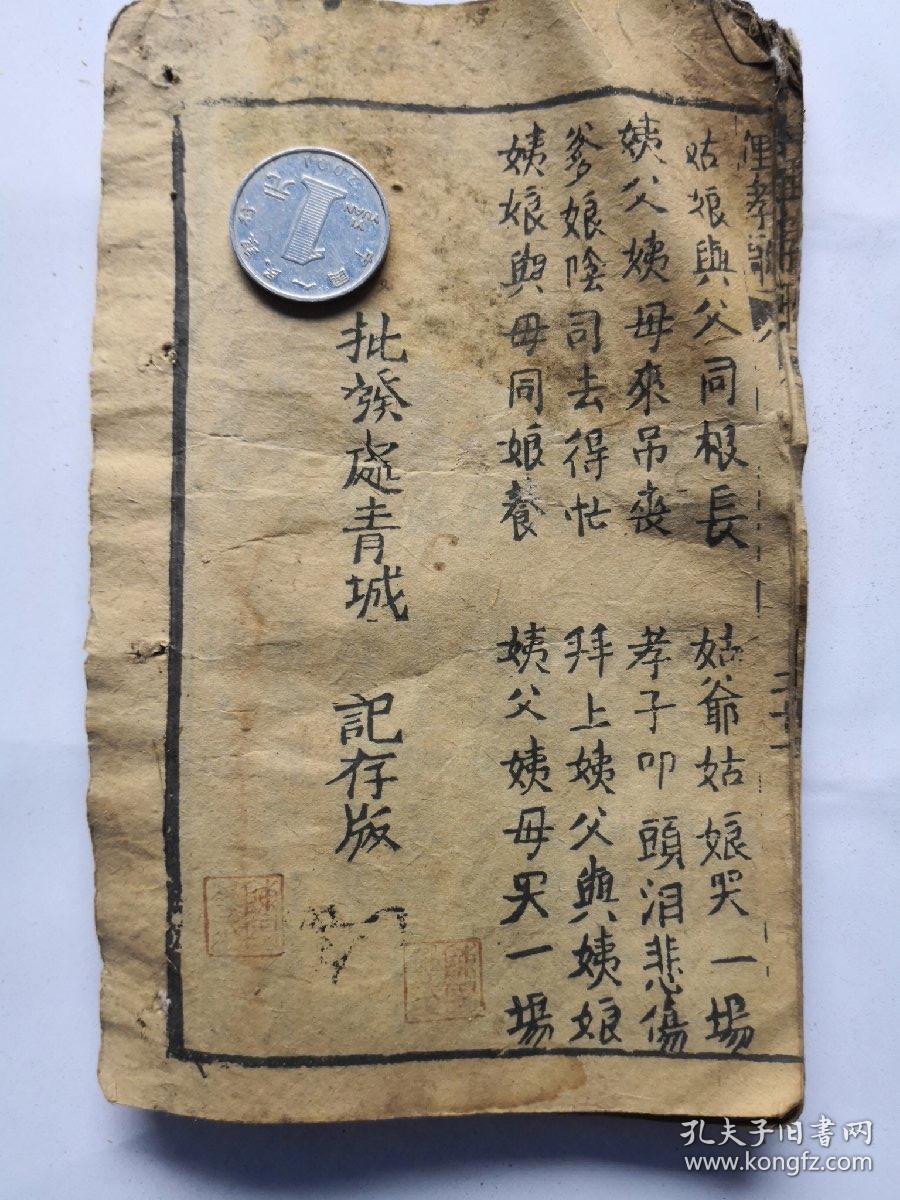 姑娘與父同根長 姑爺姑娘哭一場
姨父姨母來吊喪 孝子叩頭泪悲傷
爹娘陰司去得忙 拜上姨父與姨娘
姨娘與母同娘養 姨父姨母哭一場
批發處青城 記存版
二十一
中國人民銀行
1
元
YI YUAN
孔夫子旧书网
www.kongfz.com